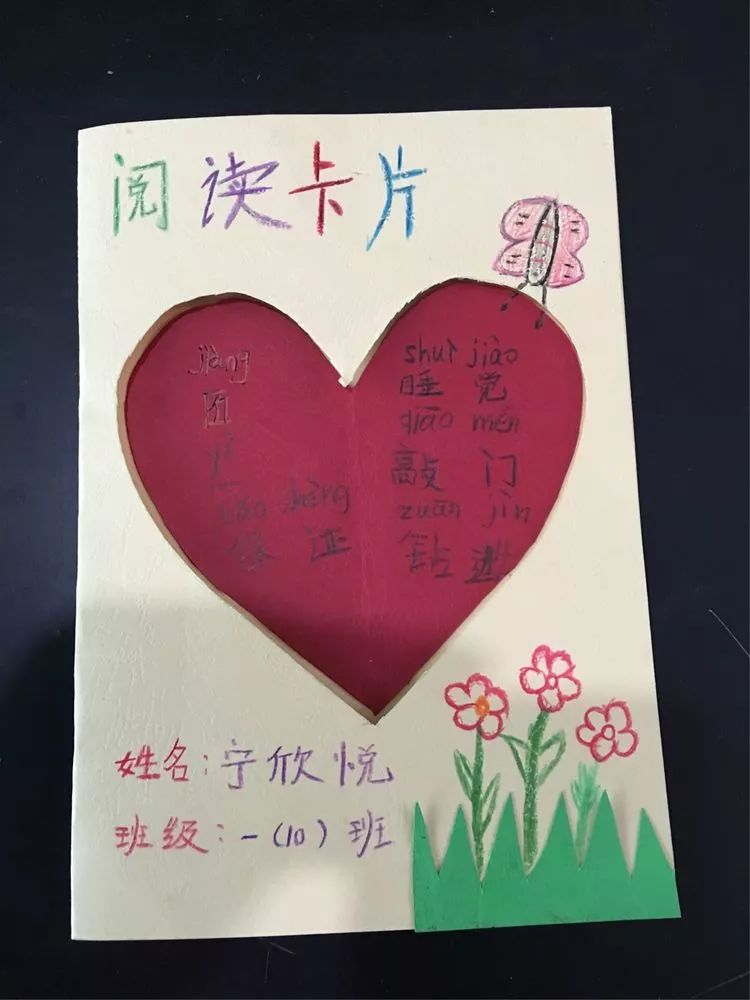 阅读卡片
jiàng
zhèng
保证
shuì jiào
睡觉
qiāo mén
敲门
zuān jìn
钻进
姓名：宁欣悦
班级：一(10)班